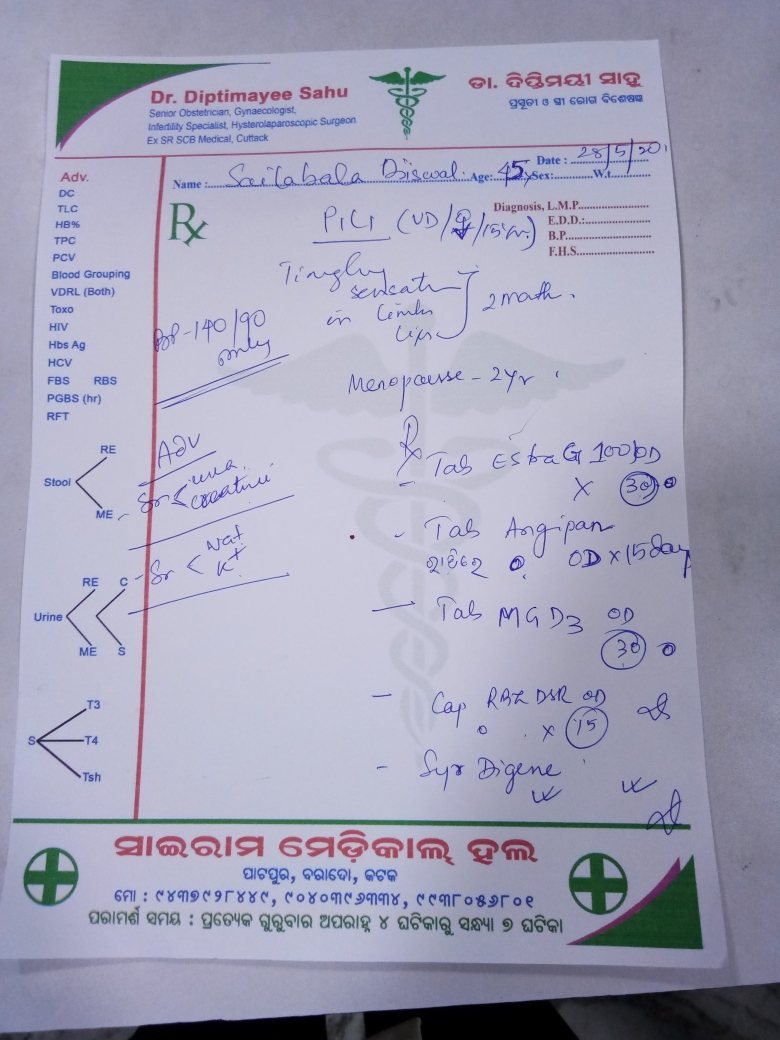 Dr. Diptimayee Sahu
Senior Obstetrician, Gynaecologist,
Infertility Specialist, Hysterolaparoscopic Surgeon
Ex SR SCB Medical, Cuttack
ଡା. ଦିପ୍ତିମୟୀ ସାହୁ
ପ୍ରସୂତୀ ଓ ସ୍ତ୍ରୀ ରୋଗ ବିଶେଷଜ୍ଞ
Date : 28/5/20
Name : Age: 45 Sex: Wt.
Rx
Diagnosis, L.M.P.
E.D.D.:
B.P.
F.H.S.
P1L1
sensation
in
2 month.
BP-140/90
Menopause - 2yr
Adv.
DC
TLC
HB%
TPC
PCV
Blood Grouping
VDRL (Both)
Toxo
HIV
Hbs Ag
HCV
FBS RBS
PGBS (hr)
RFT
RE
Stool
ME
RE C
Urine
ME S
T3
S T4
Tsh
Adv
Sr < urea
creatinine
Sr < Na+
K+
Rx
Tab Estra G 100 OD
X 30
- Tab Angipan
OD X 15 day
- Tab MG D3 OD
30
- Cap DSR OD
X 15
- Syr Digene
ସାଇରାମ ମେଡ଼ିକାଲ୍ ହଲ
ପାଟପୁର, ବରାଦୋ, କଟକ
ମୋ : ୯୪୩୭୯୨୮୪୪୯, ୯୦୪୦୩୯୬୩୩୪, ୯୯୩୮୦୫୬୮୦୧
ପରାମର୍ଶ ସମୟ : ପ୍ରତ୍ୟେକ ଗୁରୁବାର ଅପରାହ୍ନ ୪ ଘଟିକାରୁ ସନ୍ଧ୍ୟା ୭ ଘଟିକା